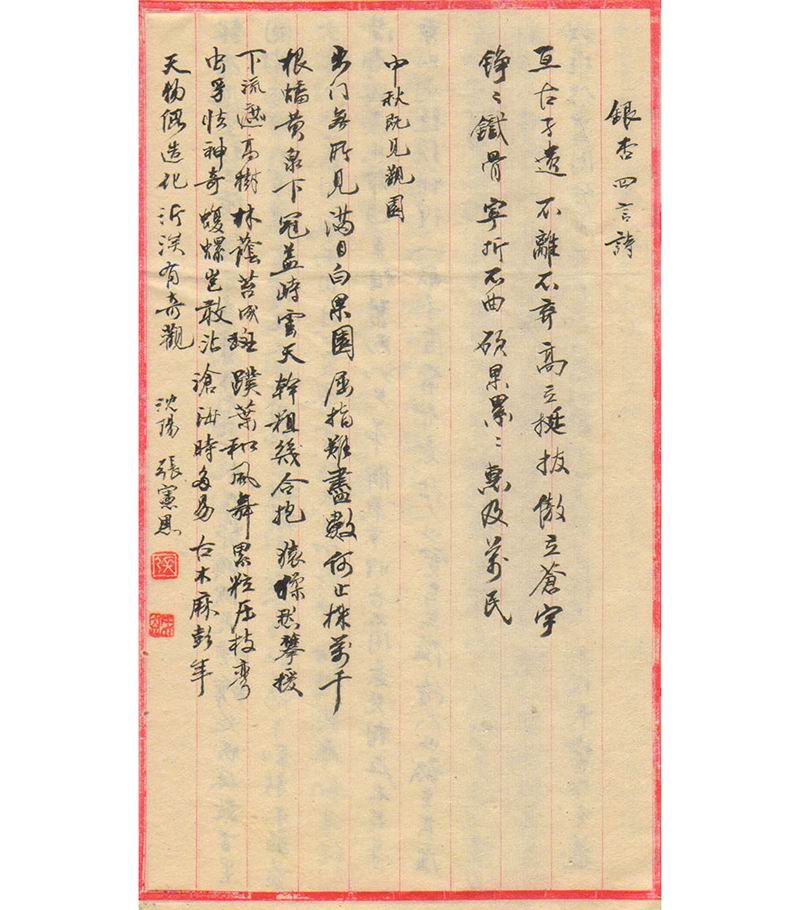 銀杏四言詩
亙古孑遺 不離不棄 高立挺拔 傲立蒼宇
錚々鐵骨 寧折不曲 碩果累々 惠及萬民
中秋既見觀園
出门無所見 满目白果園 屈指難盡數 何止株萬千
根蟠黄泉下 冠蓋峙雲天 幹粗幾合抱 猿猱愁攀援
下流遮高樹 林蔭苔成斑 蹼葉和風舞 累粒压枝彎
虫孚怯神奇 蝮螺岂敢沾 滄海時多易 古木麻彭年
天物偶造化 沂淡有奇觀 沈陽 張憲恩